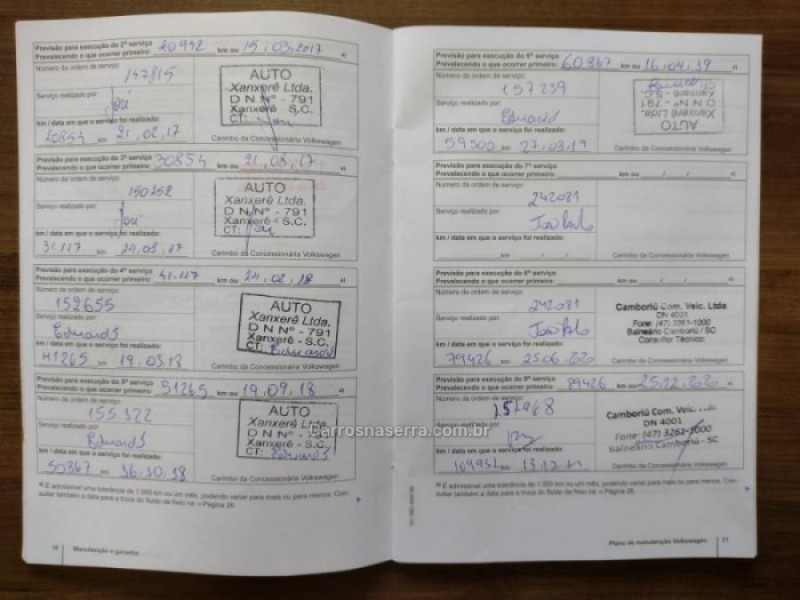 Previsão para execução do 2º serviço
Prevalecendo o que ocorrer primeiro: 20942 km ou 15.03.2017 a)
Número da ordem de serviço:
147815
Serviço realizado por:
km / data em que o serviço foi realizado:
20854 km 21.02.17
AUTO
Xanxerê Ltda.
D N Nº - 791
Xanxerê - S.C.
CT:
Carimbo da Concessionária Volkswagen
Previsão para execução do 3º serviço
Prevalecendo o que ocorrer primeiro: 30854 km ou 21.08.17 a)
Número da ordem de serviço:
150252
Serviço realizado por:
km / data em que o serviço foi realizado:
31.117 km 24.08.17
AUTO
Xanxerê Ltda.
D N Nº - 791
Xanxerê - S.C.
CT:
Carimbo da Concessionária Volkswagen
Previsão para execução do 4º serviço
Prevalecendo o que ocorrer primeiro: 41.117 km ou 24.02.18 a)
Número da ordem de serviço:
152655
Serviço realizado por:
km / data em que o serviço foi realizado:
41265 km 19.03.18
AUTO
Xanxerê Ltda.
D N Nº - 791
Xanxerê - S.C.
CT:
Carimbo da Concessionária Volkswagen
Previsão para execução do 5º serviço
Prevalecendo o que ocorrer primeiro: 51265 km ou 19.09.18 a)
Número da ordem de serviço:
155322
Serviço realizado por:
km / data em que o serviço foi realizado:
50867 km 16.10.18
AUTO
Xanxerê Ltda.
D N Nº - 791
Xanxerê - S.C.
CT:
Carimbo da Concessionária Volkswagen
a) É admissível uma tolerância de 1.000 km ou um mês, podendo variar para mais ou para menos. Con-
sultar também a data para a troca do fluido de freio na ⇒ Página 26.
16 Manutenção e garantia
Previsão para execução do 6º serviço
Prevalecendo o que ocorrer primeiro: 60.867 km ou 16.04.19 a)
Número da ordem de serviço:
157239
Serviço realizado por:
Eduardo
km / data em que o serviço foi realizado:
59500 km 27.03.19
AUTO
Xanxerê Ltda.
D N Nº - 791
Xanxerê - S.C.
CT:
Carimbo da Concessionária Volkswagen
Previsão para execução do 7º serviço
Prevalecendo o que ocorrer primeiro: km ou / / a)
Número da ordem de serviço:
242081
Serviço realizado por:
João Paulo
km / data em que o serviço foi realizado:
km
Carimbo da Concessionária Volkswagen
Previsão para execução do 8º serviço
Prevalecendo o que ocorrer primeiro: km ou / / a)
Número da ordem de serviço:
242081
Serviço realizado por:
João Paulo
km / data em que o serviço foi realizado:
79426 km 25.06.2020
Camboriú Com. Veic. Ltda
DN 4001
Fone: (47) 3261-1000
Balneário Camboriú / SC
Consultor Técnico:
Carimbo da Concessionária Volkswagen
Previsão para execução do 9º serviço
Prevalecendo o que ocorrer primeiro: 89426 km ou 25.12.2020 a)
Número da ordem de serviço:
Serviço realizado por:
km / data em que o serviço foi realizado:
km
Camboriú Com. Veic.
DN 4001
Fone: (47) 3261-1000
Balneário Camboriú - SC
Carimbo da Concessionária Volkswagen
a) É admissível uma tolerância de 1.000 km ou um mês, podendo variar para mais ou para menos. Con-
sultar também a data para a troca do fluido de freio na ⇒ Página 26.
Plano de manutenção Volkswagen 17
Carrosnaserra.com.br